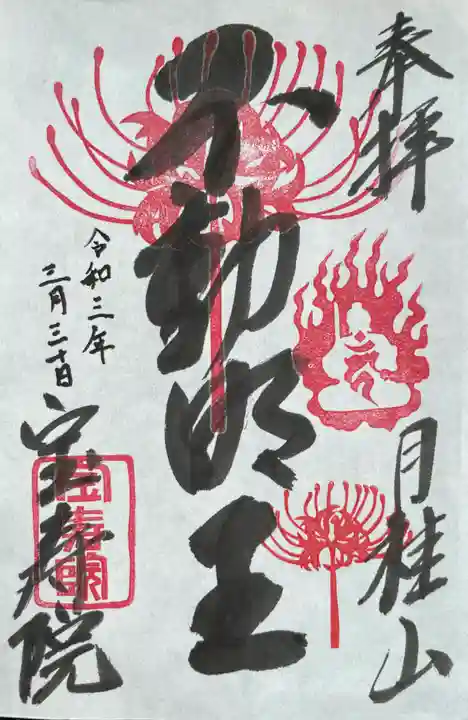 奉拝
月桂山
不動明王
令和三年
三月三十日
宝寿院